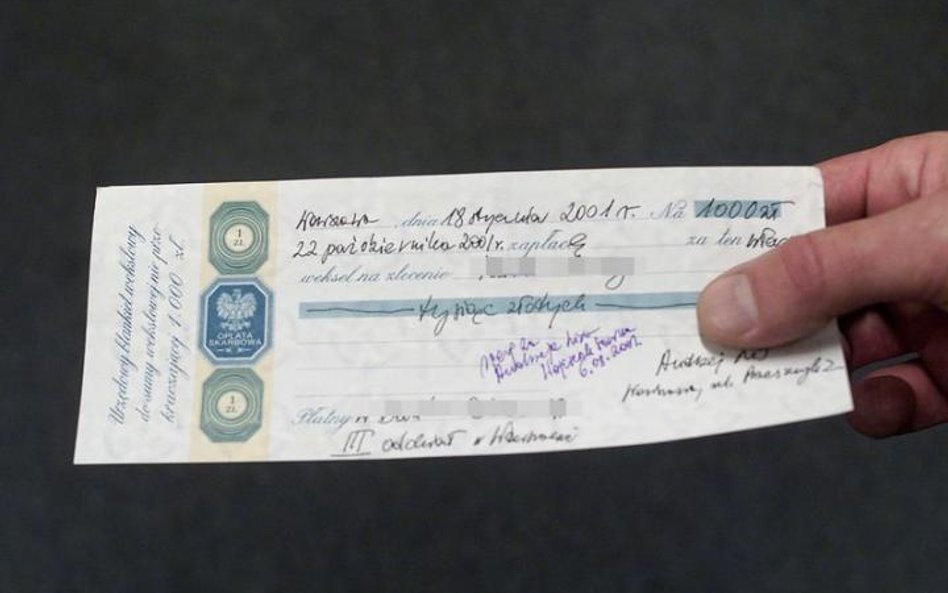 Urzędowy blankiet wekslowy
do sumy wekslowej nie prze-
kraczającej 1.000 zł.
1
ZŁ
OPŁATA
SKARBOWA
1
ZŁ
Warszawa, dnia 18 stycznia 2001 r. Na 1000 zł
22 października 2001 r. zapłacę za ten
weksel na zlecenie
tysiąc złotych
6.03.2001
Andrzej
Warszawa, ul.
Płatny w
III oddział w Warszawie